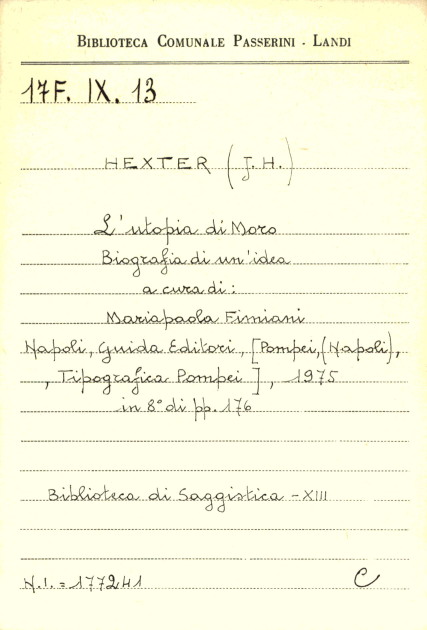 BIBLIOTECA COMUNALE PASSERINI - LANDI
17F. IX. 13
HEXTER (J. H.)
L'utopia di Moro
Biografia di un'idea
a cura di:
Mariapaola Fimiani
Napoli, Guida Editori, [Pompei, (Napoli),
, Tipografica Pompei], 1975
in 8° di pp. 176
Biblioteca di Saggistica - XIII
N.I. = 177241 C